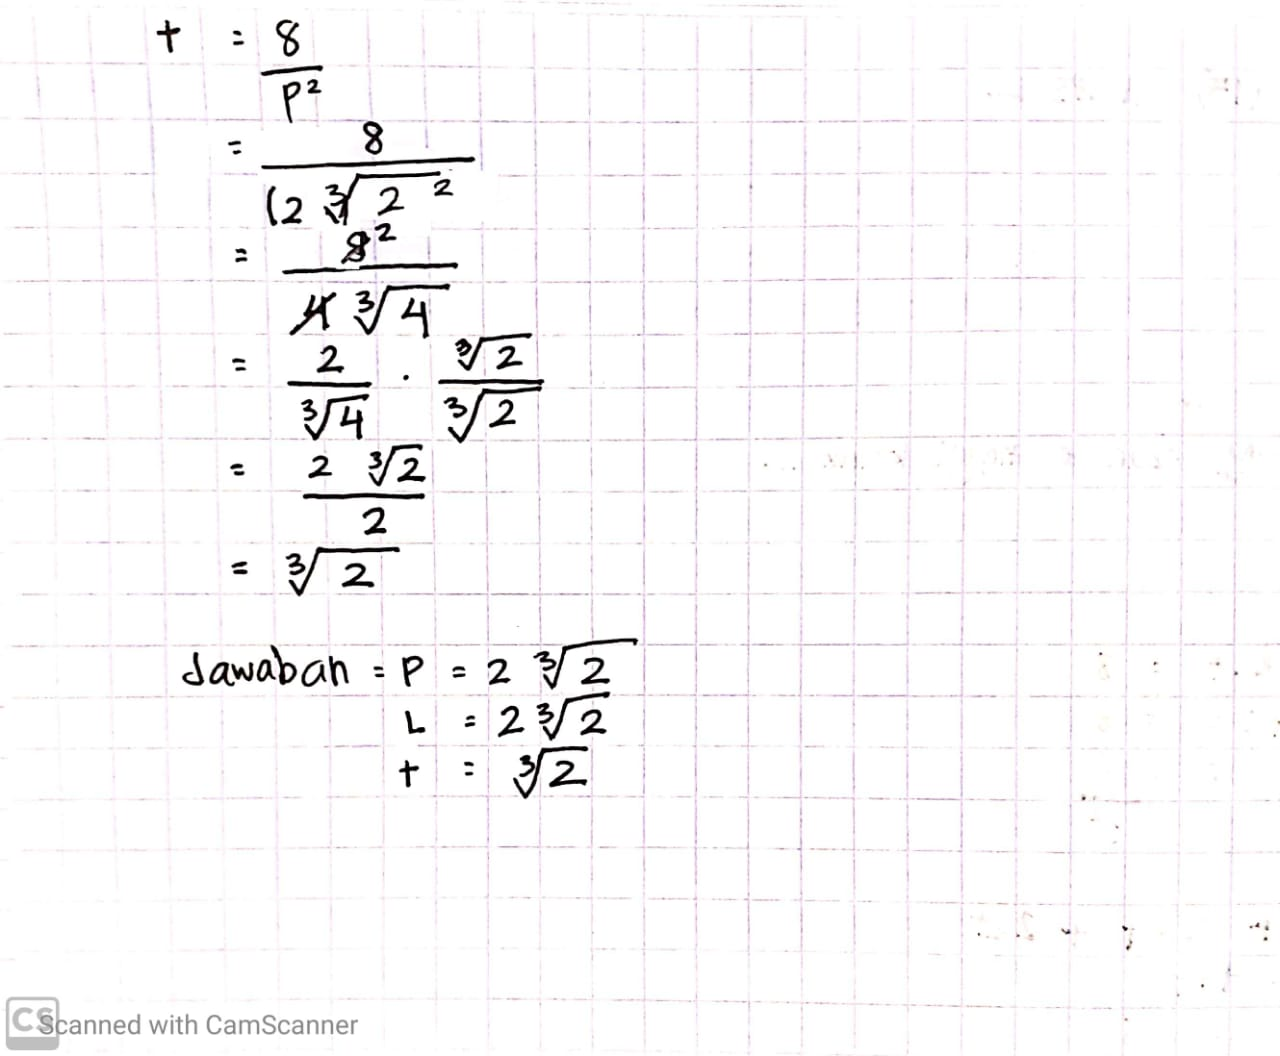 t = 8/p²
= 8/(2 ∛2 ²
= 8²/4 ∛4
= 2/∛4 . ∛2/∛2
= 2 ∛2/2
= ∛2
Jawaban = P = 2 ∛2
L = 2 ∛2
t = ∛2
CS Scanned with CamScanner